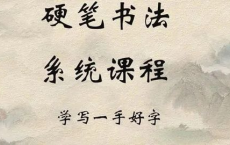 硬笔书法
系统课程
学写一手好字